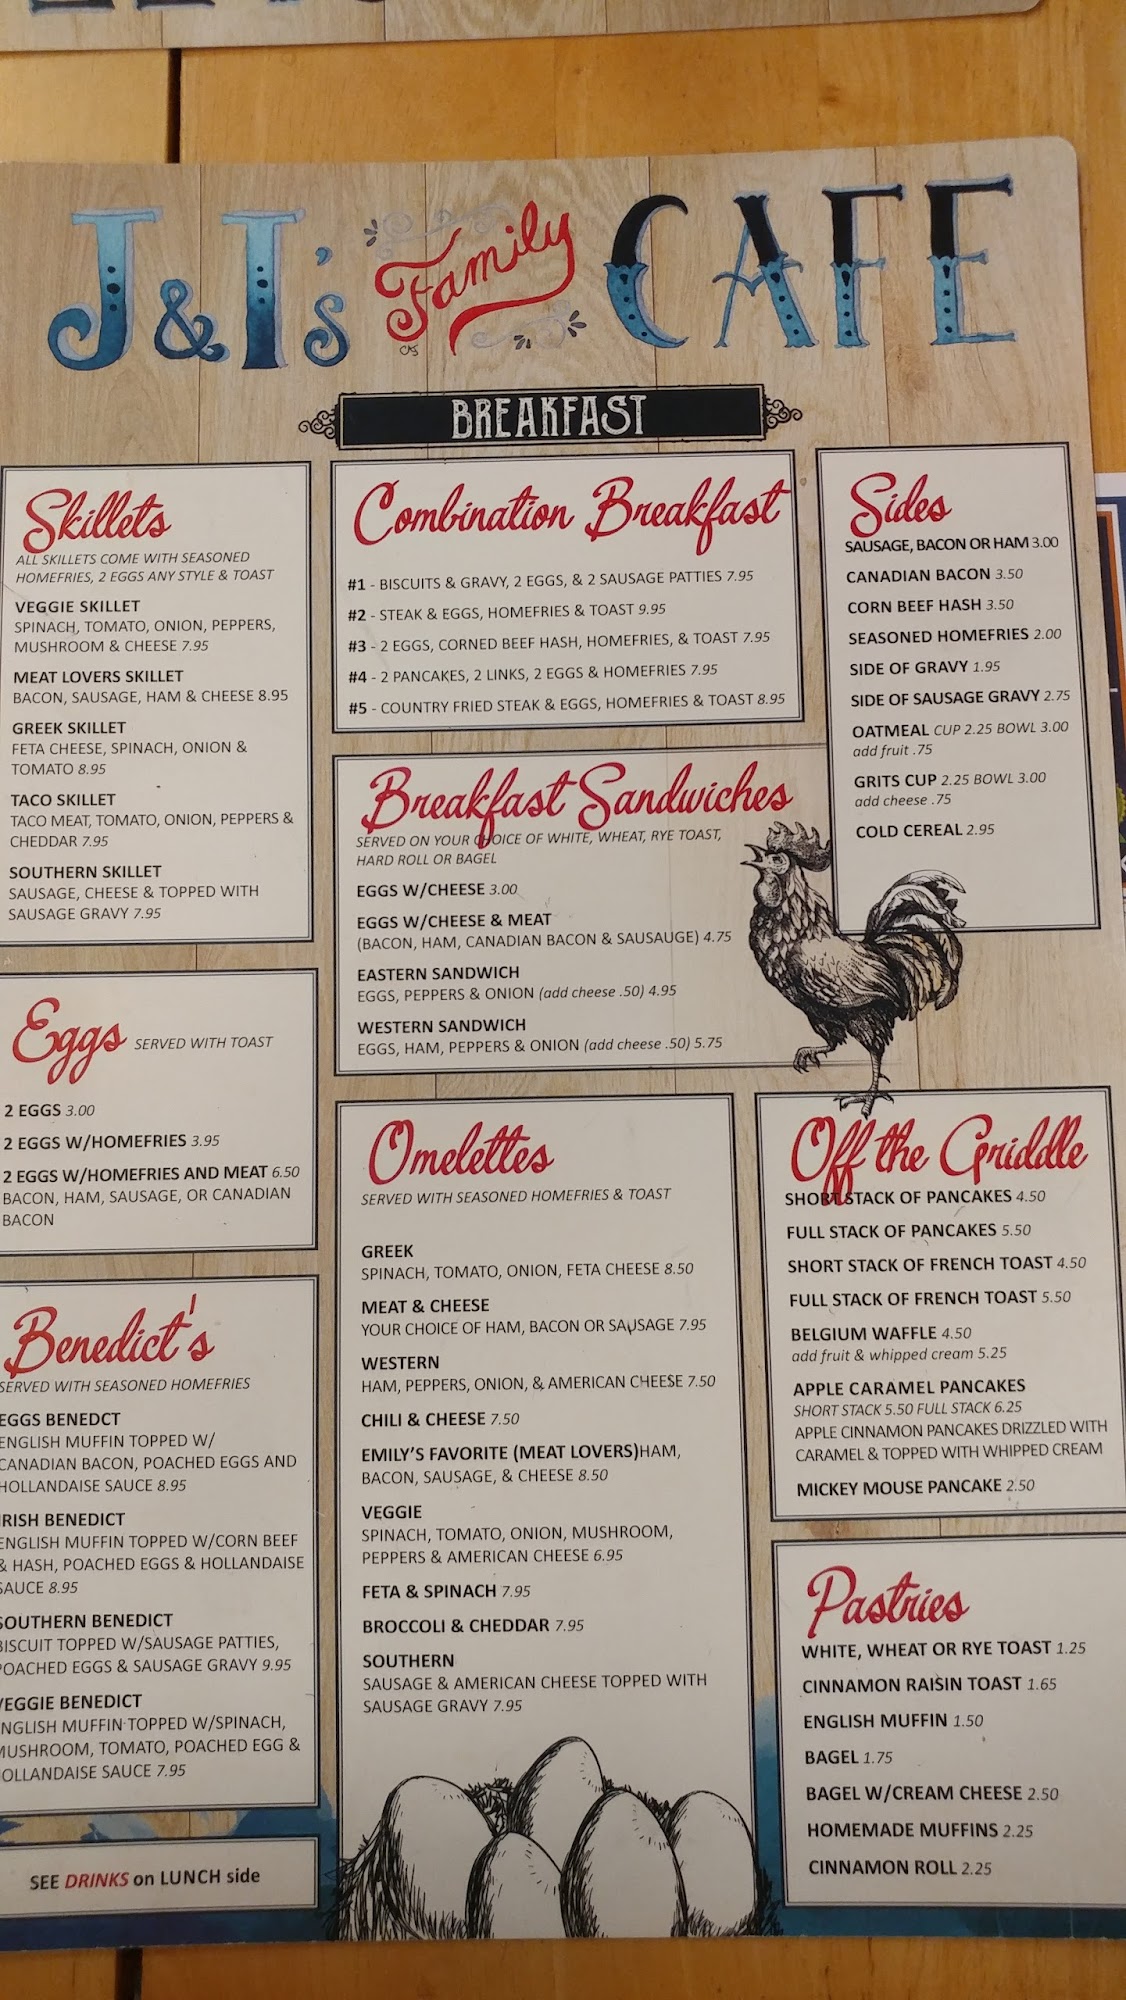 J&I's Family CAFE
BREAKFAST
Skillets
ALL SKILLETS COME WITH SEASONED
HOMEFRIES, 2 EGGS ANY STYLE & TOAST
VEGGIE SKILLET
SPINACH, TOMATO, ONION, PEPPERS,
MUSHROOM & CHEESE 7.95
MEAT LOVERS SKILLET
BACON, SAUSAGE, HAM & CHEESE 8.95
GREEK SKILLET
FETA CHEESE, SPINACH, ONION &
TOMATO 8.95
TACO SKILLET
TACO MEAT, TOMATO, ONION, PEPPERS &
CHEDDAR 7.95
SOUTHERN SKILLET
SAUSAGE, CHEESE & TOPPED WITH
SAUSAGE GRAVY 7.95
Eggs SERVED WITH TOAST
2 EGGS 3.00
2 EGGS W/HOMEFRIES 3.95
2 EGGS W/HOMEFRIES AND MEAT 6.50
BACON, HAM, SAUSAGE, OR CANADIAN
BACON
Benedict's
SERVED WITH SEASONED HOMEFRIES
EGGS BENEDCT
ENGLISH MUFFIN TOPPED W/
CANADIAN BACON, POACHED EGGS AND
HOLLANDAISE SAUCE 8.95
IRISH BENEDICT
ENGLISH MUFFIN TOPPED W/CORN BEEF
& HASH, POACHED EGGS & HOLLANDAISE
SAUCE 8.95
SOUTHERN BENEDICT
BISCUIT TOPPED W/SAUSAGE PATTIES,
POACHED EGGS & SAUSAGE GRAVY 9.95
VEGGIE BENEDICT
ENGLISH MUFFIN TOPPED W/SPINACH,
MUSHROOM, TOMATO, POACHED EGG &
HOLLANDAISE SAUCE 7.95
SEE DRINKS on LUNCH side
Combination Breakfast
#1 - BISCUITS & GRAVY, 2 EGGS, & 2 SAUSAGE PATTIES 7.95
#2 - STEAK & EGGS, HOMEFRIES & TOAST 9.95
#3 - 2 EGGS, CORNED BEEF HASH, HOMEFRIES, & TOAST 7.95
#4 - 2 PANCAKES, 2 LINKS, 2 EGGS & HOMEFRIES 7.95
#5 - COUNTRY FRIED STEAK & EGGS, HOMEFRIES & TOAST 8.95
Breakfast Sandwiches
SERVED ON YOUR CHOICE OF WHITE, WHEAT, RYE TOAST,
HARD ROLL OR BAGEL
EGGS W/CHEESE 3.00
EGGS W/CHEESE & MEAT
(BACON, HAM, CANADIAN BACON & SAUSAUGE) 4.75
EASTERN SANDWICH
EGGS, PEPPERS & ONION (add cheese .50) 4.95
WESTERN SANDWICH
EGGS, HAM, PEPPERS & ONION (add cheese .50) 5.75
Omelettes
SERVED WITH SEASONED HOMEFRIES & TOAST
GREEK
SPINACH, TOMATO, ONION, FETA CHEESE 8.50
MEAT & CHEESE
YOUR CHOICE OF HAM, BACON OR SAUSAGE 7.95
WESTERN
HAM, PEPPERS, ONION, & AMERICAN CHEESE 7.50
CHILI & CHEESE 7.50
EMILY'S FAVORITE (MEAT LOVERS)HAM,
BACON, SAUSAGE, & CHEESE 8.50
VEGGIE
SPINACH, TOMATO, ONION, MUSHROOM,
PEPPERS & AMERICAN CHEESE 6.95
FETA & SPINACH 7.95
BROCCOLI & CHEDDAR 7.95
SOUTHERN
SAUSAGE & AMERICAN CHEESE TOPPED WITH
SAUSAGE GRAVY 7.95
Sides
SAUSAGE, BACON OR HAM 3.00
CANADIAN BACON 3.50
CORN BEEF HASH 3.50
SEASONED HOMEFRIES 2.00
SIDE OF GRAVY 1.95
SIDE OF SAUSAGE GRAVY 2.75
OATMEAL CUP 2.25 BOWL 3.00
add fruit .75
GRITS CUP 2.25 BOWL 3.00
add cheese .75
COLD CEREAL 2.95
Off the Griddle
SHORT STACK OF PANCAKES 4.50
FULL STACK OF PANCAKES 5.50
SHORT STACK OF FRENCH TOAST 4.50
FULL STACK OF FRENCH TOAST 5.50
BELGIUM WAFFLE 4.50
add fruit & whipped cream 5.25
APPLE CARAMEL PANCAKES
SHORT STACK 5.50 FULL STACK 6.25
APPLE CINNAMON PANCAKES DRIZZLED WITH
CARAMEL & TOPPED WITH WHIPPED CREAM
MICKEY MOUSE PANCAKE 2.50
Pastries
WHITE, WHEAT OR RYE TOAST 1.25
CINNAMON RAISIN TOAST 1.65
ENGLISH MUFFIN 1.50
BAGEL 1.75
BAGEL W/CREAM CHEESE 2.50
HOMEMADE MUFFINS 2.25
CINNAMON ROLL 2.25